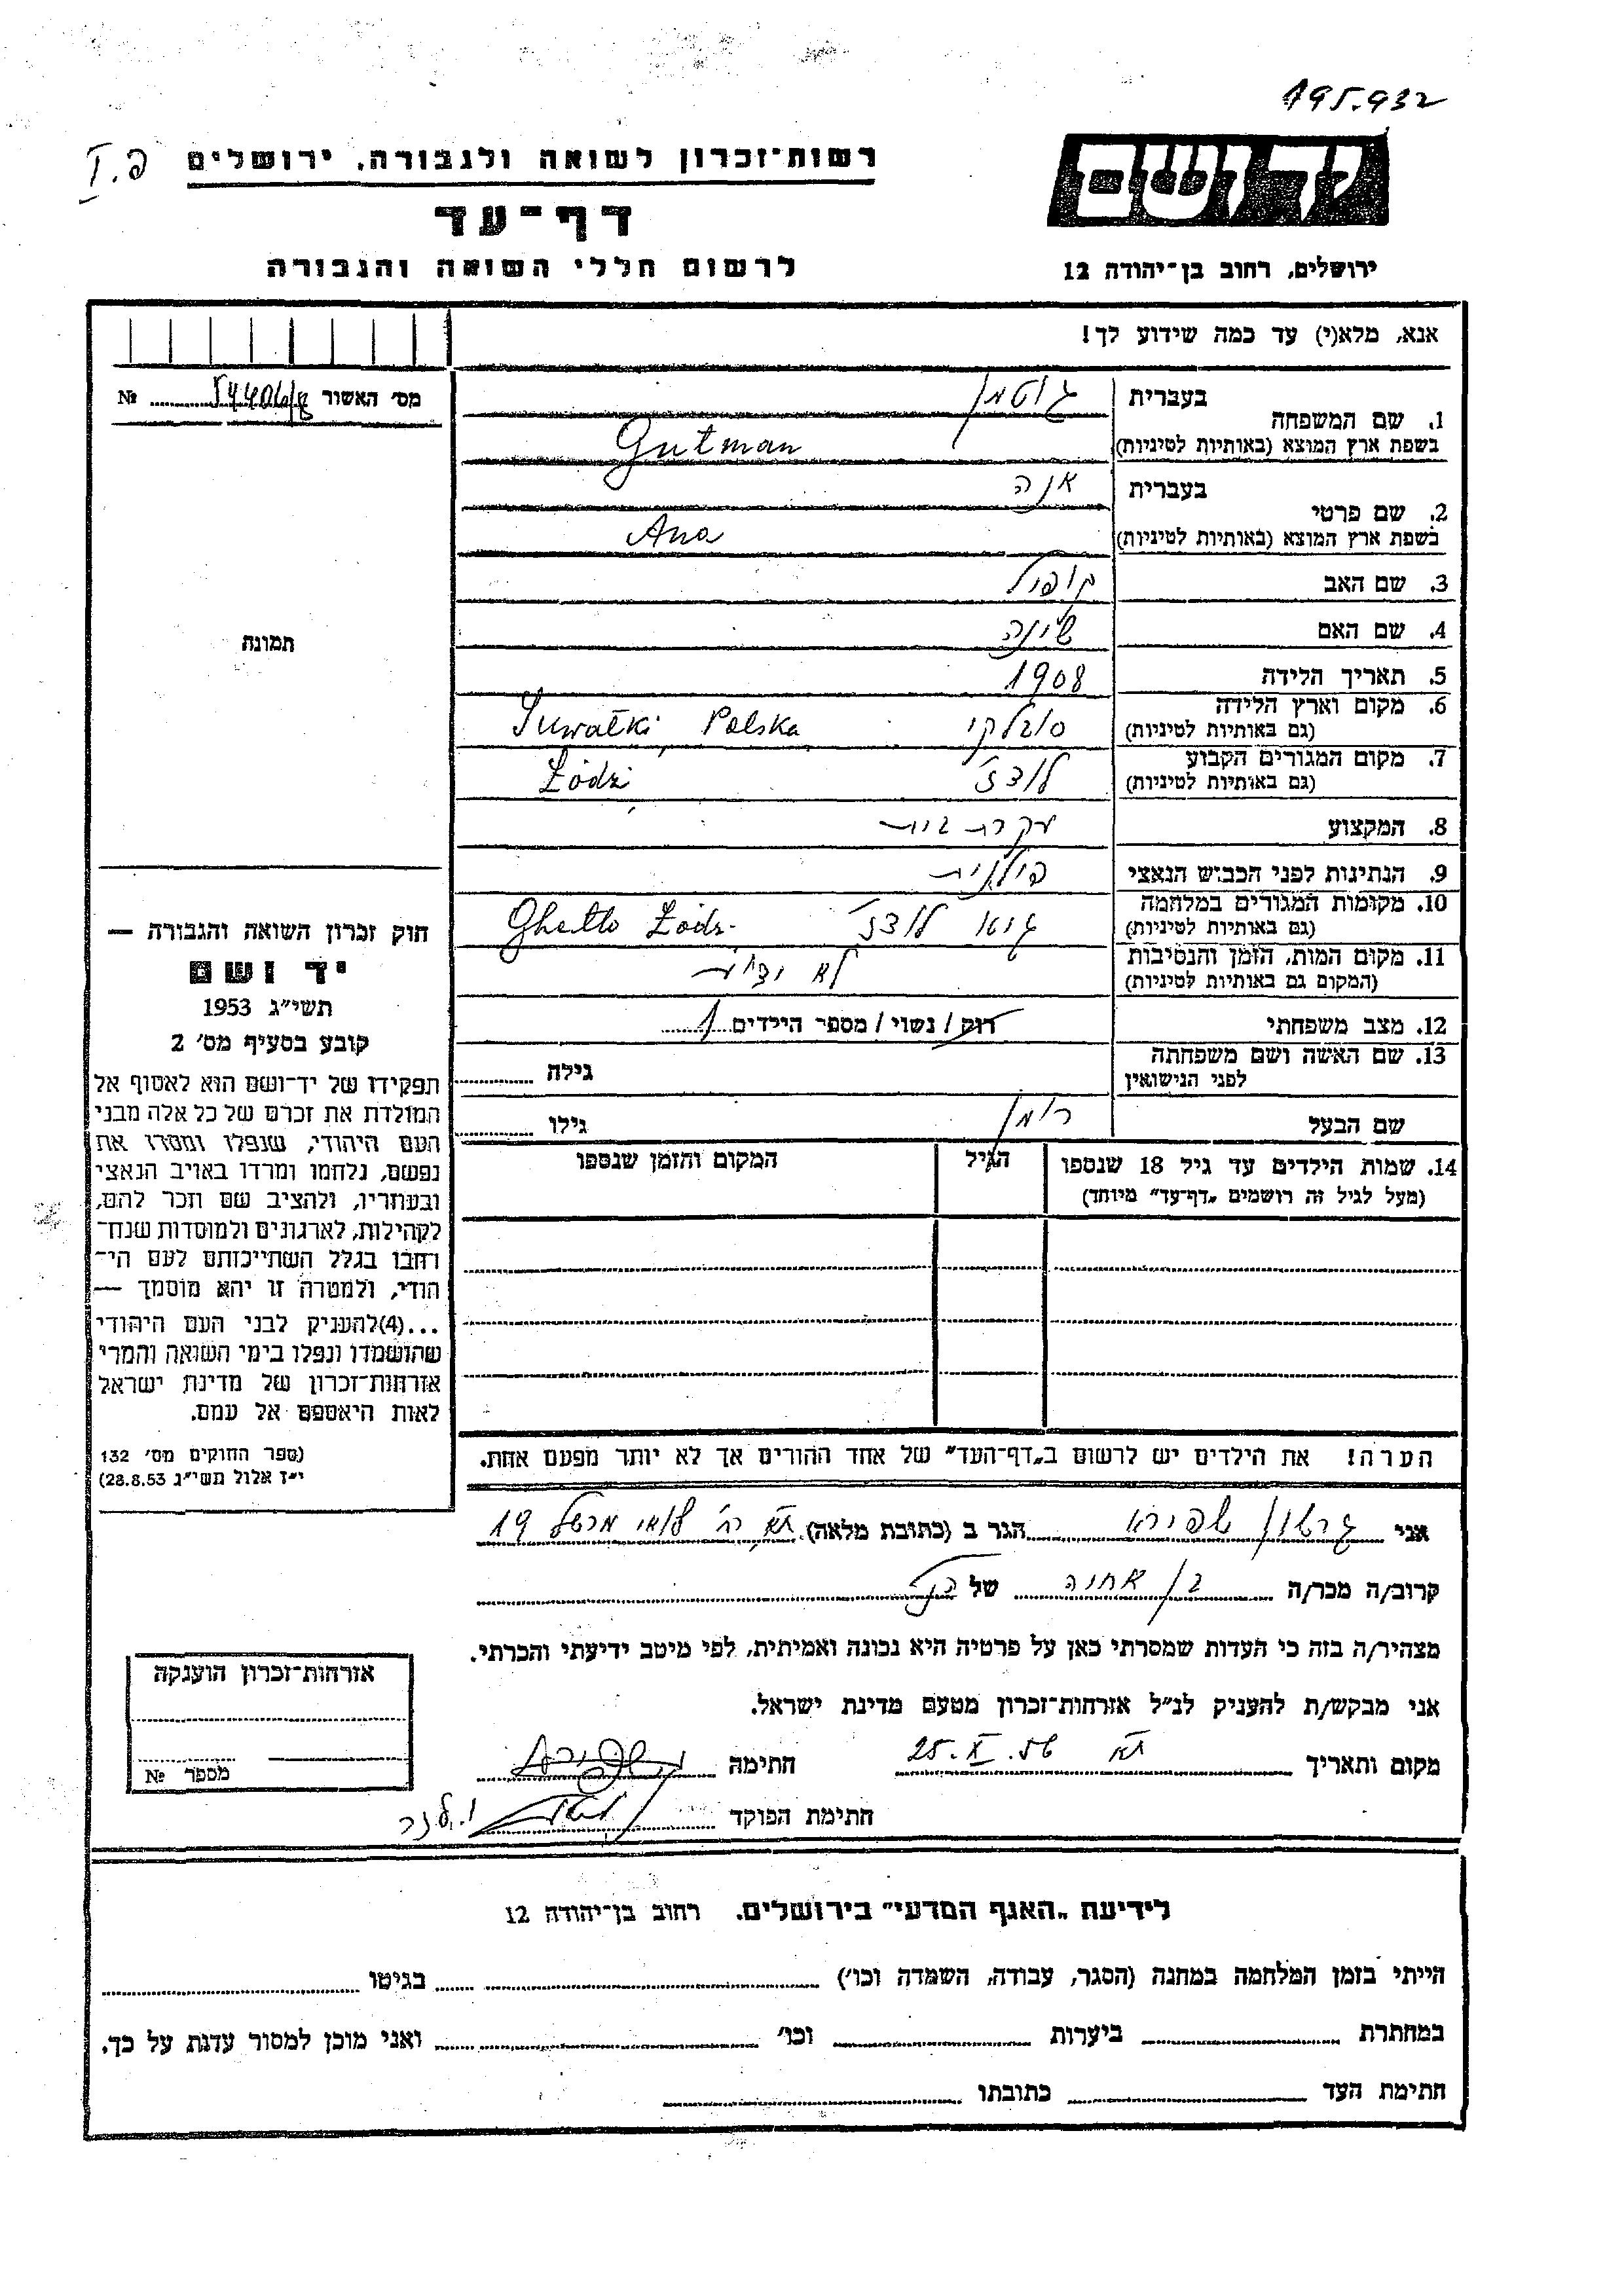 195.932
יד ושם
רשות־זכרון לשואה ולגבורה, ירושלים
פ.I
דף־עד
ירושלים, רחוב בן־יהודה 12
לרשום חללי השואה והגבורה
אנא, מלא(י) עד כמה שידוע לך!
1. שם המשפחה
בעברית גוטמן
בשפת ארץ המוצא (באותיות לטיניות) Gutman
2. שם פרטי
בעברית אנה
בשפת ארץ המוצא (באותיות לטיניות) Ana
3. שם האב קופול
4. שם האם שיינה
5. תאריך הלידה 1908
6. מקום וארץ הלידה
(גם באותיות לטיניות) סובלקי Suwałki Polska
7. מקום המגורים הקבוע
(גם באותיות לטיניות) לודז' Łódź
8. המקצוע עקרת בית
9. הנתינות לפני הכבוש הנאצי פולנית
10. מקומות המגורים במלחמה
(גם באותיות לטיניות) גיטו לודז' Ghetto Łódź
11. מקום המות, הזמן והנסיבות
(המקום גם באותיות לטיניות) לא ידוע
12. מצב משפחתי רווק/נשוי/מספר הילדים 1
13. שם האשה ושם משפחתה
לפני הנישואין גילה
שם הבעל רומן גילו
14. שמות הילדים עד גיל 18 שנספו הגיל המקום והזמן שנספו
(מעל לגיל זה רושמים „דף־עד” מיוחד)
הערה! את הילדים יש לרשום ב„דף־העד” של אחד ההורים אך לא יותר מפעם אחת.
מס׳ האשור №
תמונה
חוק זכרון השואה והגבורה —
יד ושם
תשי״ג 1953
קובע בסעיף מס׳ 2
תפקידו של יד־ושם הוא לאסוף אל
המולדת את זכרם של כל אלה מבני
העם היהודי, שנפלו ומסרו את
נפשם, נלחמו ומרדו באויב הנאצי
ובעוזריו, ולהציב שם וזכר להם,
לקהילות, לארגונים ולמוסדות שנח־
רבו בגלל השתייכותם לעם הי־
הודי, ולמטרה זו יהא מוסמך —
...(4) להעניק לבני העם היהודי
שהושמדו ונפלו בימי השואה והמרי
אזרחות־זכרון של מדינת ישראל
לאות היאספם אל עמם.
(ספר החוקים מס׳ 132
י״ז אלול תשי״ג 28.8.53)
אני גרשון שפירא הגר ב (כתובת מלאה) 19
קרוב/ה מכר/ה בן אחיה של הנ״ל
מצהיר/ה בזה כי העדות שמסרתי כאן על פרטיה היא נכונה ואמיתית, לפי מיטב ידיעתי והכרתי.
אני מבקש/ת להעניק לנ״ל אזרחות־זכרון מטעם מדינת ישראל.
מקום ותאריך ת״א 25.X.56 חתימה
חתימת הפוקד
אזרחות־זכרון הוענקה
מספר №
לידיעת „האגף המדעי” בירושלים. רחוב בן־יהודה 12
הייתי בזמן המלחמה במחנה (הסגר, עבודה, השמדה וכו׳) בגיטו
במחתרת ביערות וכו׳ ואני מוכן למסור עדות על כך.
חתימת העד כתובתו